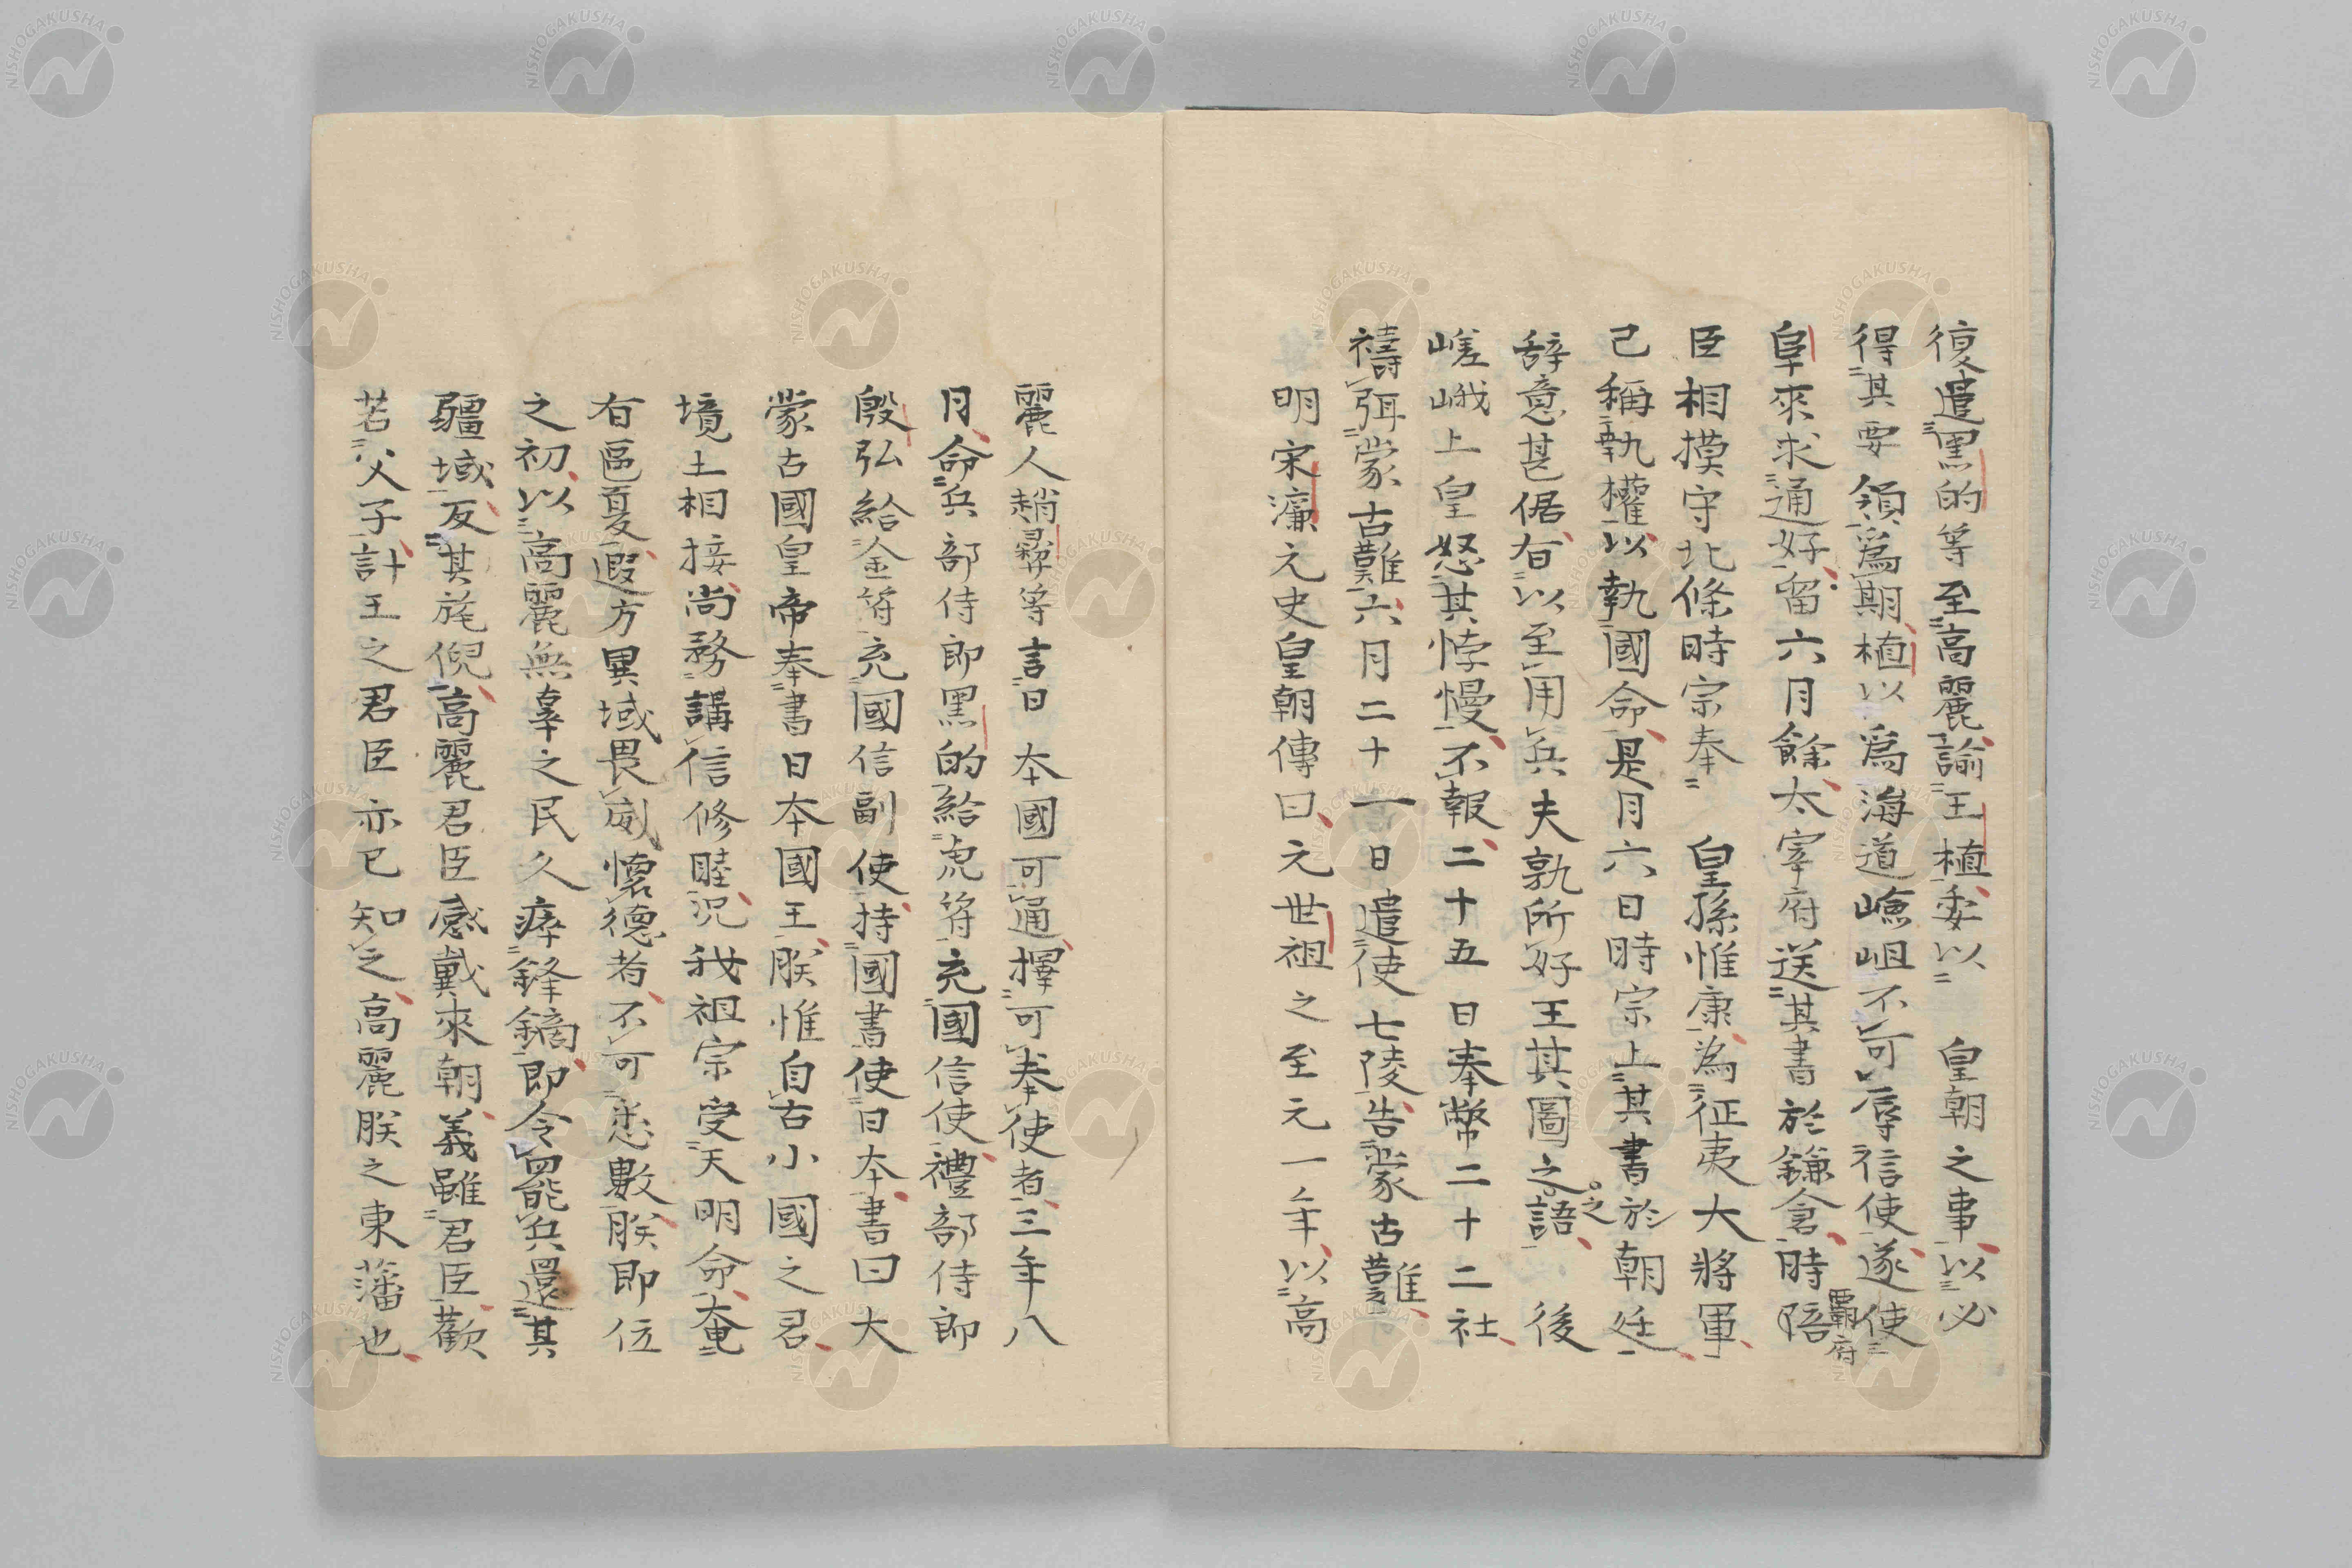 復遣黑的等至高麗諭王植委以　皇朝之事以必
得其要領爲期植以爲海道嶮岨不可辱信使遂使
阜來求通好留六月餘太宰府送其書於鎌倉時陪
覇府
臣相摸守北條時宗奉　皇孫惟康為征夷大將軍
己稱執權以執國命是月六日時宗上其書於朝廷
之
辞意甚倨有以至用兵夫孰所好王其圖之語　後
嵯峨上皇怒其悖慢不報二十五日奉幣二十二社
禱弭蒙古難六月二十一日遣使七陵告蒙古難
明宋濂元史皇朝傳曰元世祖之至元一年以高
麗人趙彛等言日本國可通擇可奉使者三年八
月命兵部侍郎黑的給虎符充國信使禮部侍郎
殷弘給金符充國信副使持國書使日本書曰大
蒙古國皇帝奉書日本國王朕惟自古小國之君
境土相接尚務講信修睦况我祖宗受天明命奄
有區夏遐方異域畏威懷德者不可悉數朕即位
之初以高麗無辜之民久瘁鋒鏑即令罷兵還其
疆域反其旄倪高麗君臣感戴來朝義雖君臣歡
若父子計王之君臣亦已知之高麗朕之東藩也
NISHOGAKUSHA